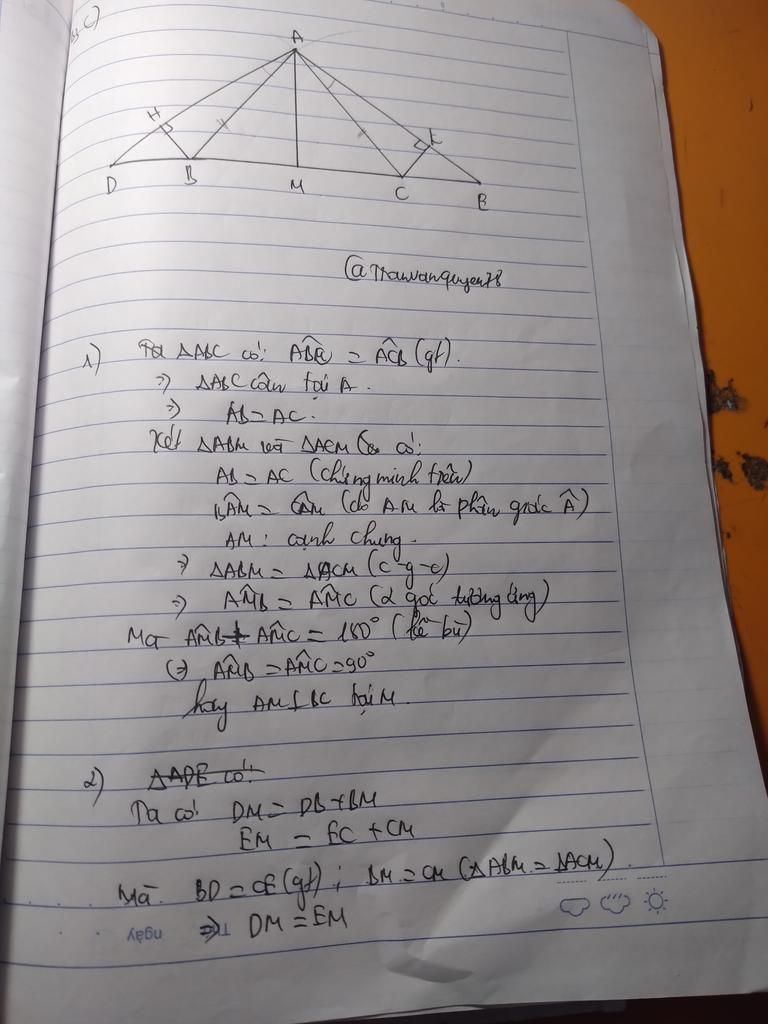 c)
A
H
K
D B M C E
@Tranvanquyen78
1) Ta ΔABC có: ABC^ = ACB^ (gt).
=> ΔABC cân tại A.
=> AB = AC.
Xét ΔABM và ΔACM có:
AB = AC (chứng minh trên)
BAM^ = CAM^ (do AM là phân giác Â)
AM: cạnh chung.
=> ΔABM = ΔACM (c-g-c)
=> AMB^ = AMC^ (2 góc tương ứng)
Mà AMB^ + AMC^ = 180° (kề bù)
(=) AMB^ = AMC^ = 90°
hay AM ⊥ BC tại M.
2) ΔADE có:
Ta có DM = DB + BM
EM = EC + CM
Mà BD = CE (gt) ; BM = CM (ΔABM = ΔACM)
ngày
=> DM = EM